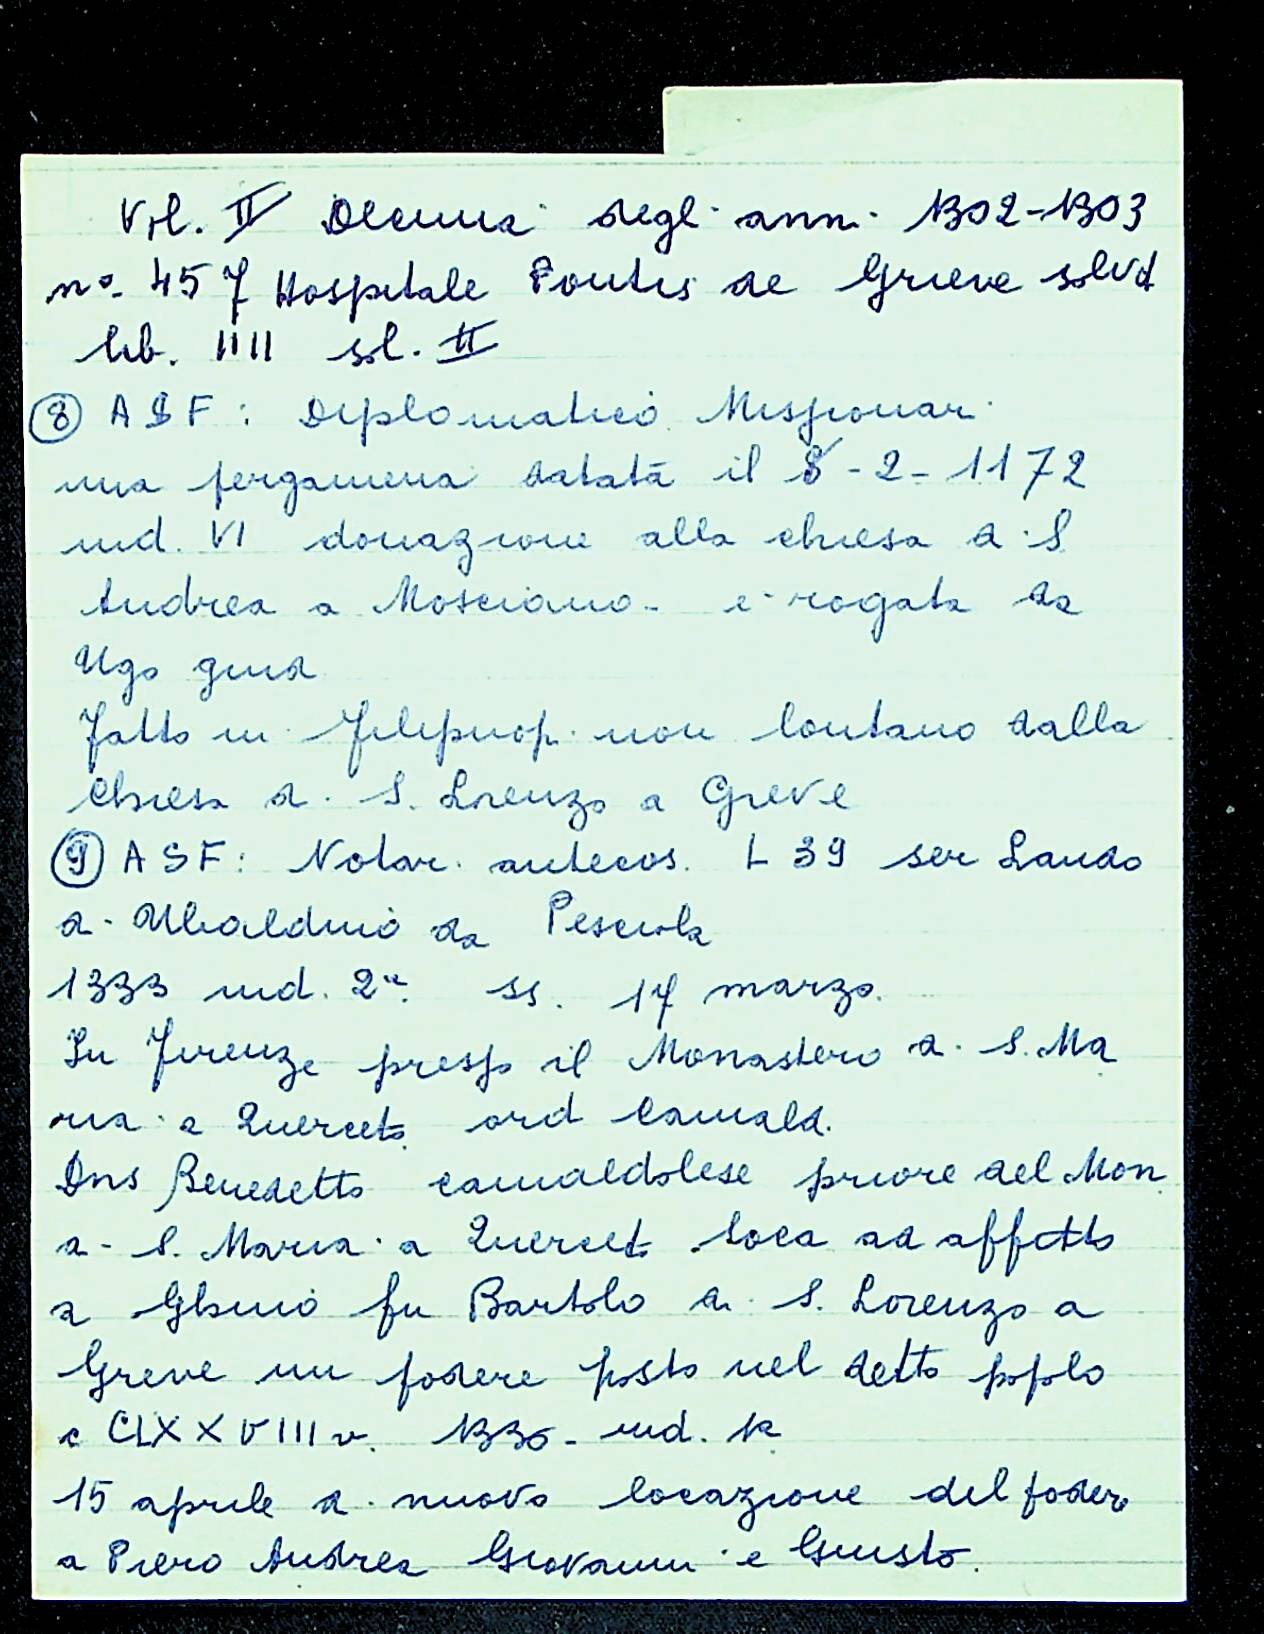 Vol. II Decima degli anni 1302-1303
n°. 457 Hospitale Pontis de Grieve solvit
lib. IIII sol. II
(8) ASF: Diplomatico Missionari
una pergamena datata il 8-2-1172
ind. VI donazione alla chiesa di S
Andrea a Mosciano e rogata da
Ugo giud
fatto in non lontano dalla
chiesa di S. Lorenzo a Greve
(9) ASF: Notar. antecos. L 39 ser Lando
di Ubaldino da Pesciola
1333 ind. 2ª. ss. 17 marzo.
In Firenze presso il Monastero di S. Ma
ria a Querceto ord Camald.
Dns Benedetto camaldolese priore del Mon
di S. Maria a Querceto loca ad affitto
a Ghino fu Bartolo di S. Lorenzo a
Greve un podere posto nel detto popolo
c CLXXVIII v. 1336 - ind.
15 aprile di nuovo locazione del podere
a Piero Andrea Giovanni e Giusto.